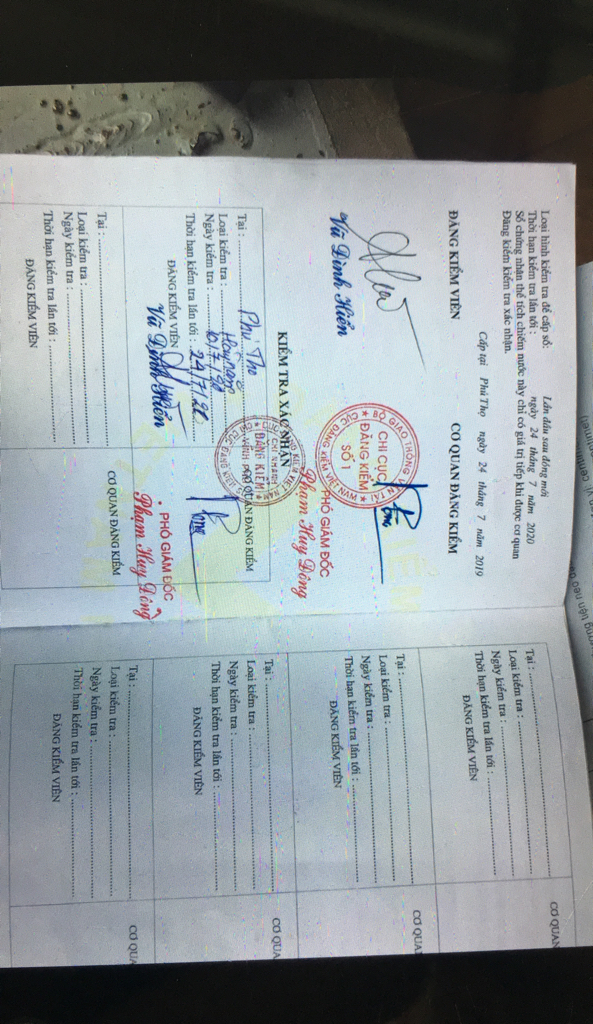 Loại hình kiểm tra để cấp sổ: Lần đầu sau đóng mới
Thời hạn kiểm tra lần tới : ngày 24 tháng 7 năm 2020
Số chứng nhận thể tích chiếm nước này chỉ có giá trị tiếp khi được cơ quan
Đăng kiểm kiểm tra xác nhận.
Cấp tại Phú Thọ ngày 24 tháng 7 năm 2019
ĐĂNG KIỂM VIÊN
CƠ QUAN ĐĂNG KIỂM
BỘ GIAO THÔNG VẬN TẢI
CỤC ĐĂNG KIỂM VIỆT NAM
CHI CỤC
ĐĂNG KIỂM
SỐ 1
Vũ Đình Hiển
PHÓ GIÁM ĐỐC
Phạm Huy Đông
KIỂM TRA XÁC NHẬN
Tại : Phú Thọ
Loại kiểm tra : Hàng năm
Ngày kiểm tra :
Thời hạn kiểm tra lần tới : 24/7/20
ĐĂNG KIỂM VIÊN
Vũ Đình Hiển
CƠ QUAN ĐĂNG KIỂM
CHI NHÁNH
ĐĂNG KIỂM
PHÓ GIÁM ĐỐC
Phạm Huy Đông
Tại :
Loại kiểm tra :
Ngày kiểm tra :
Thời hạn kiểm tra lần tới :
ĐĂNG KIỂM VIÊN
CƠ QUAN ĐĂNG KIỂM
Tại :
Loại kiểm tra :
Ngày kiểm tra :
Thời hạn kiểm tra lần tới :
ĐĂNG KIỂM VIÊN
CƠ QUAN
Tại :
Loại kiểm tra :
Ngày kiểm tra :
Thời hạn kiểm tra lần tới :
ĐĂNG KIỂM VIÊN
CƠ QUA
Tại :
Loại kiểm tra :
Ngày kiểm tra :
Thời hạn kiểm tra lần tới :
ĐĂNG KIỂM VIÊN
CƠ QUA
Tại :
Loại kiểm tra :
Ngày kiểm tra :
Thời hạn kiểm tra lần tới :
ĐĂNG KIỂM VIÊN
CƠ QUA